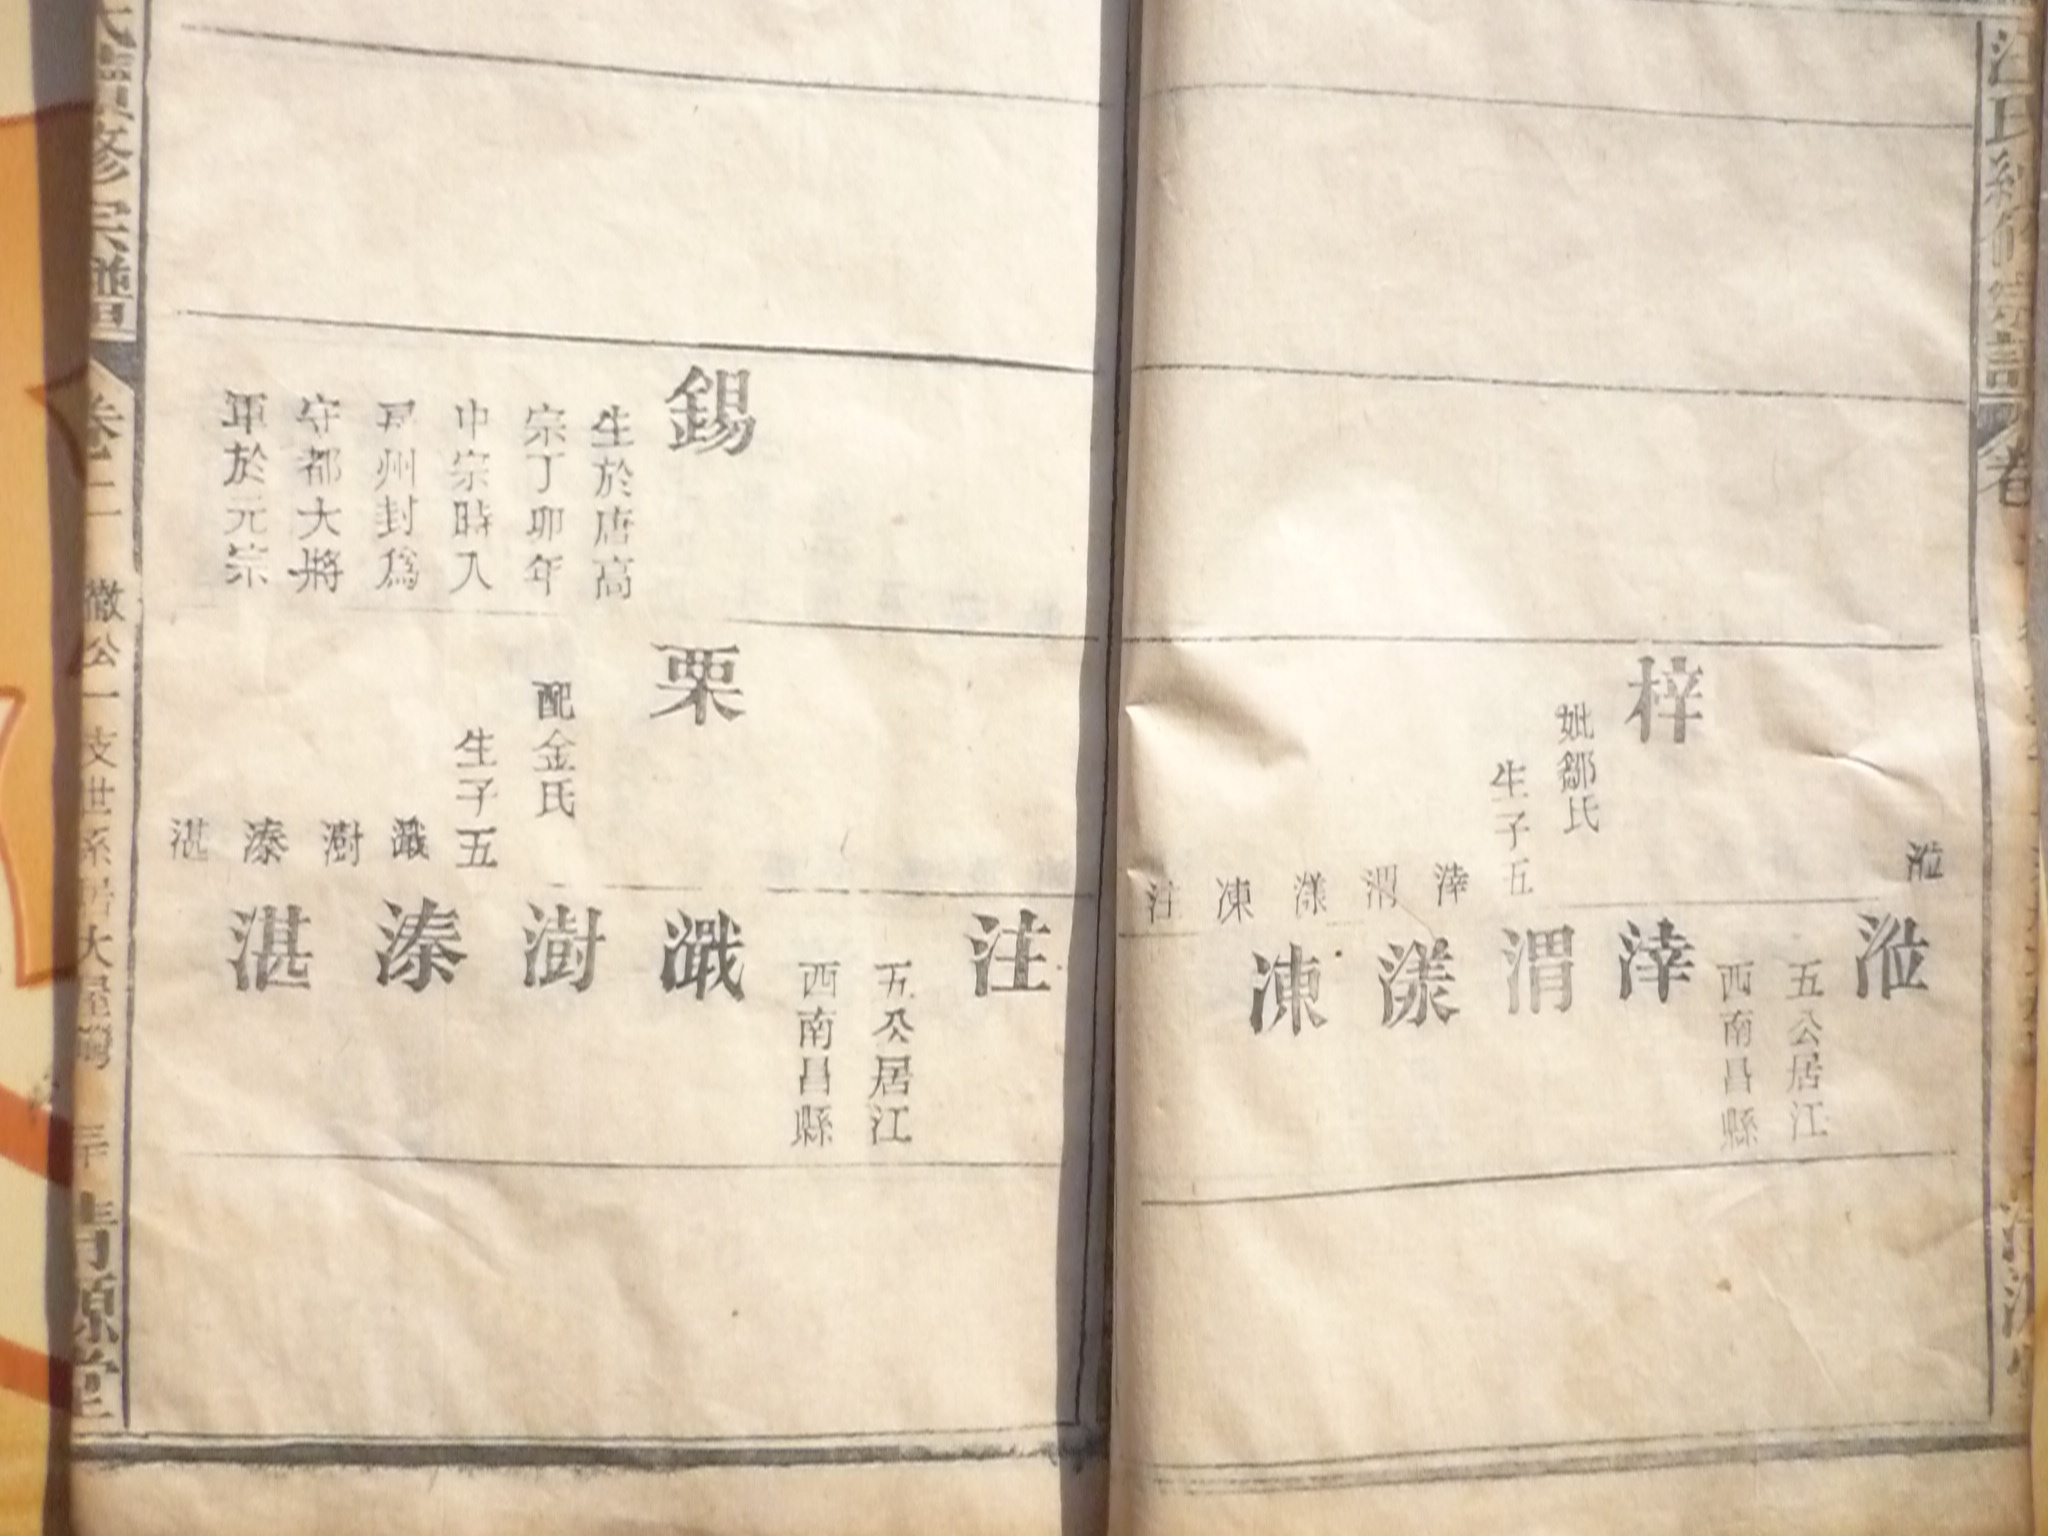 汪氏續修宗譜
卷
湴
湴
五公居江
西南昌縣
梓
妣鄒氏
生子五
涬
渭
漾
涷
注
涬
渭
漾
涷
注
五公居江
西南昌縣
錫
生於唐高
宗丁卯年
中宗時入
尋州封爲
守都大將
軍於元宗
栗
配金氏
生子五
澍
溱
湛
澍
溱
湛
氏續修宗譜
卷二
徽公一支世系居大屋
清源堂